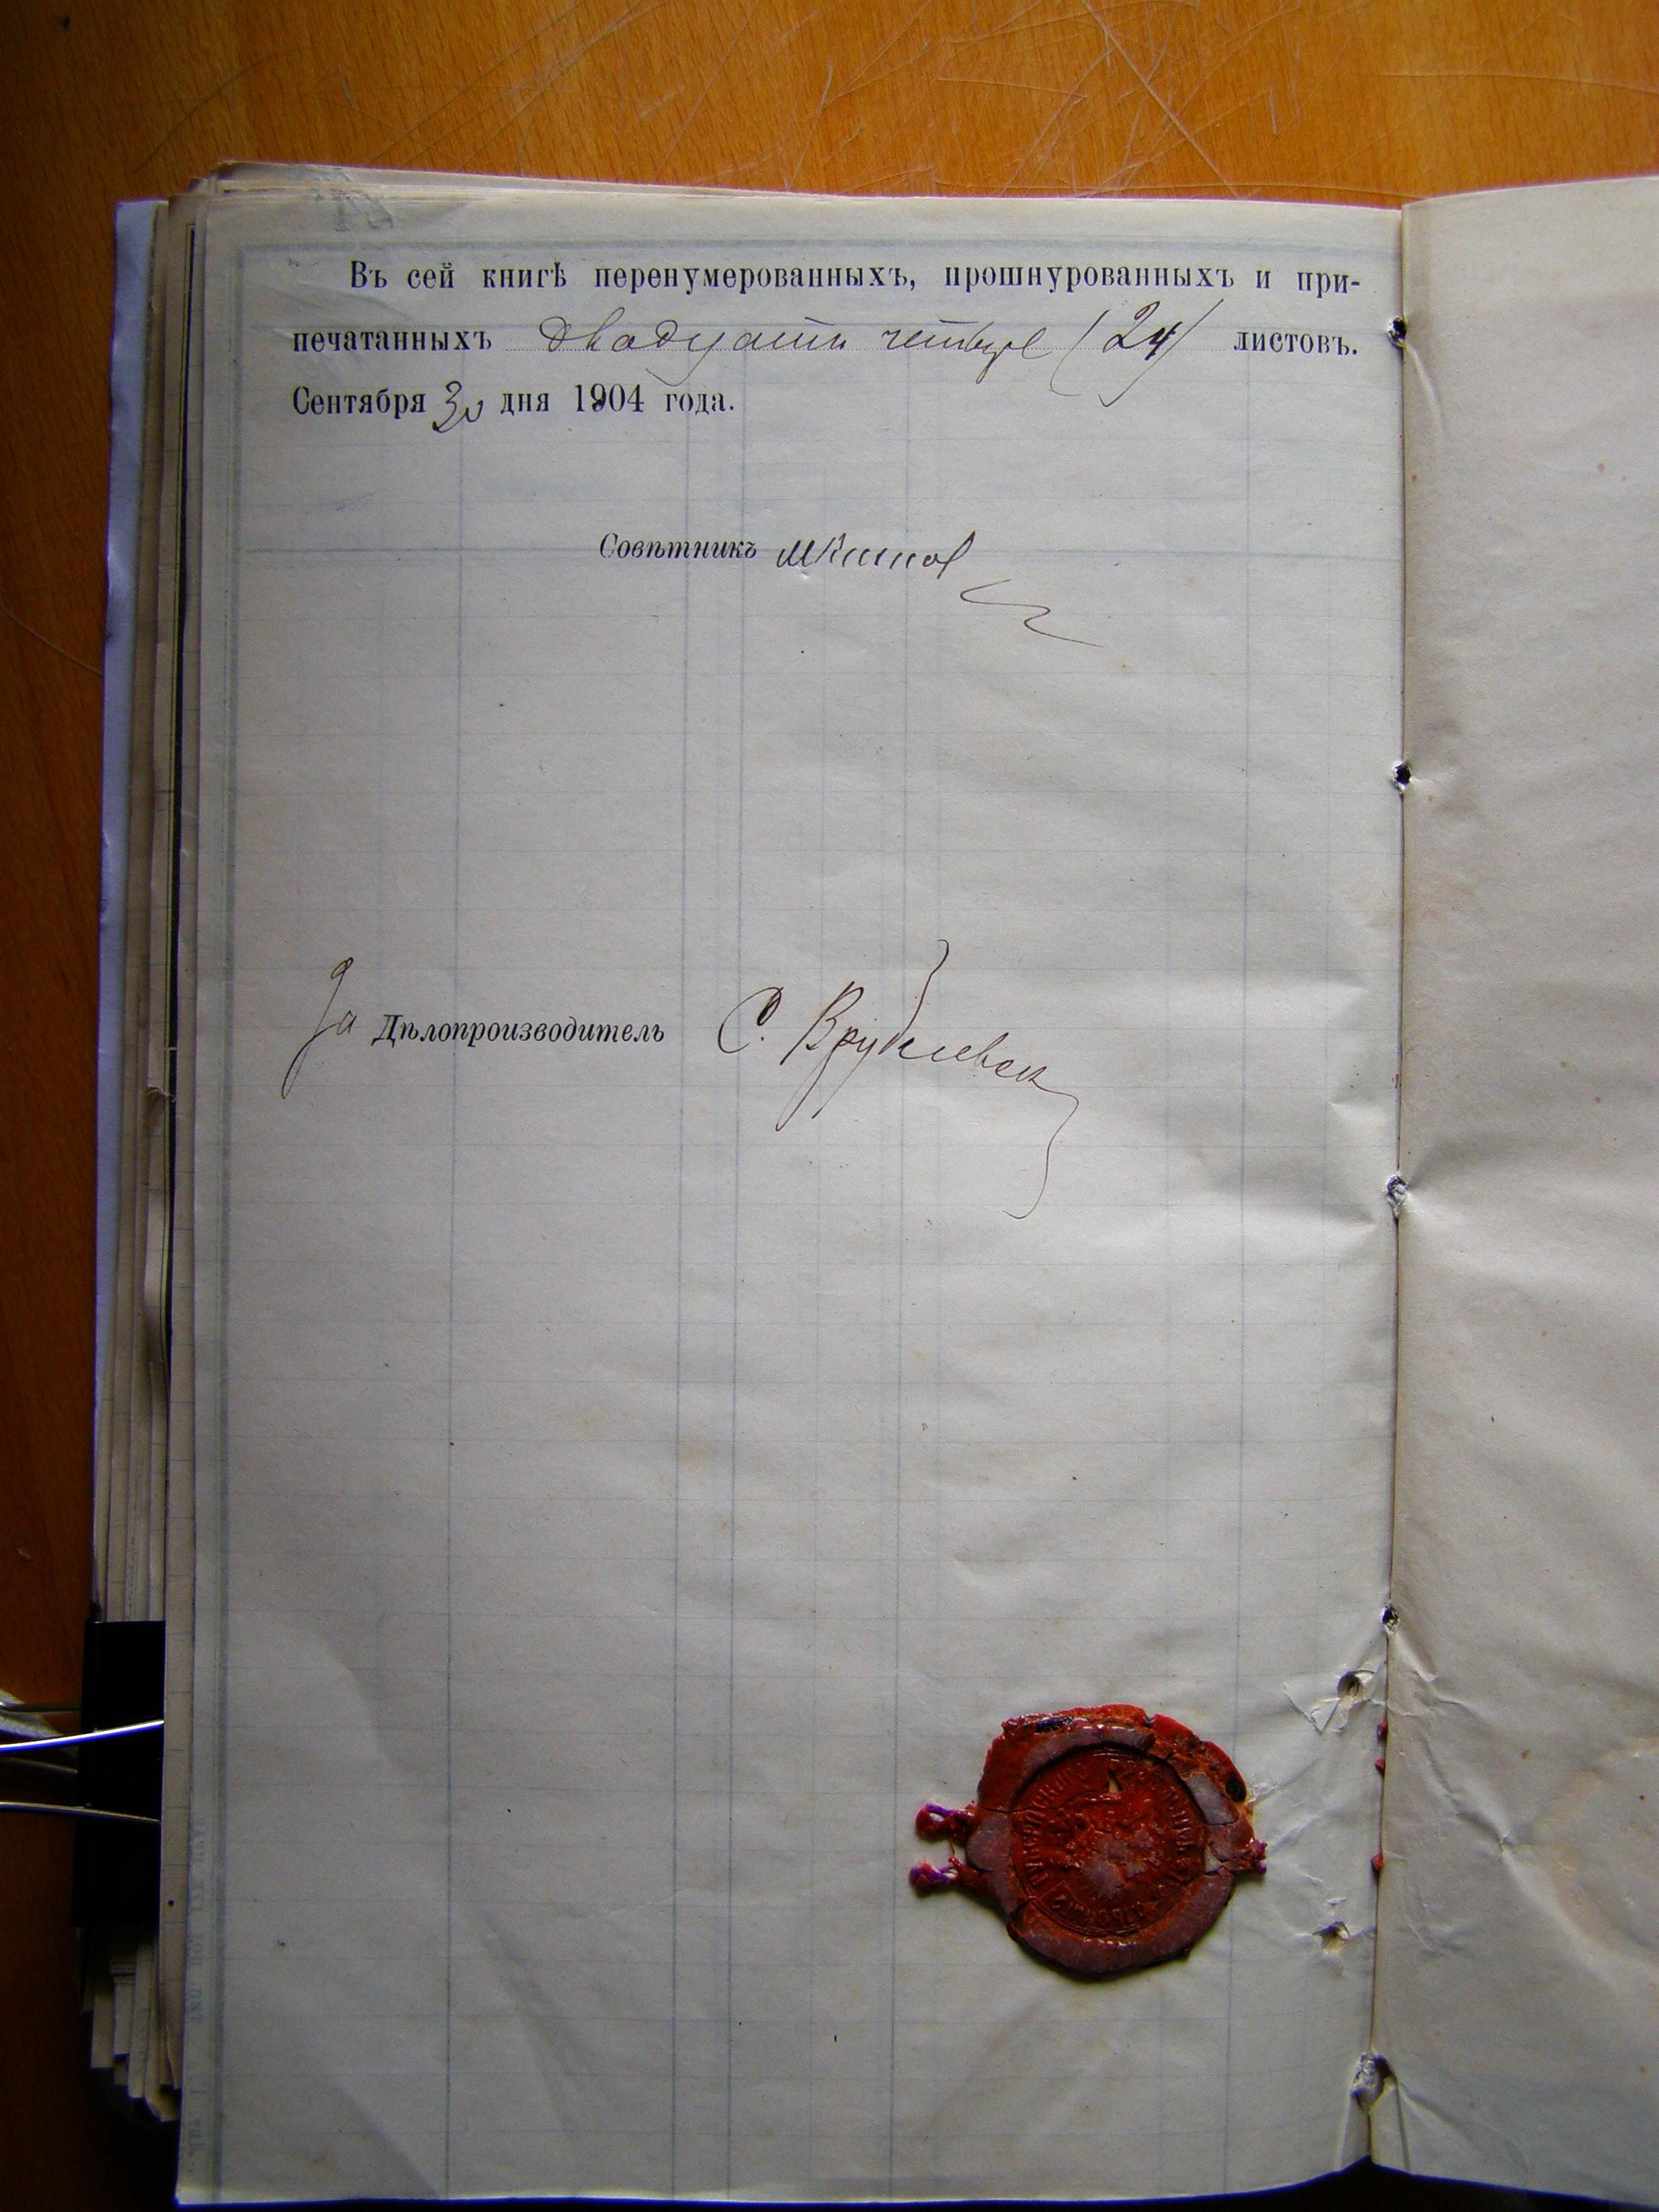 Въ сей книгѣ перенумерованныхъ, прошнурованныхъ и при-
печатанныхъ двадцать четыре (24) листовъ.
Сентября 30 дня 1904 года.
Совѣтникъ
За Дѣлопроизводитель С. Врублевск